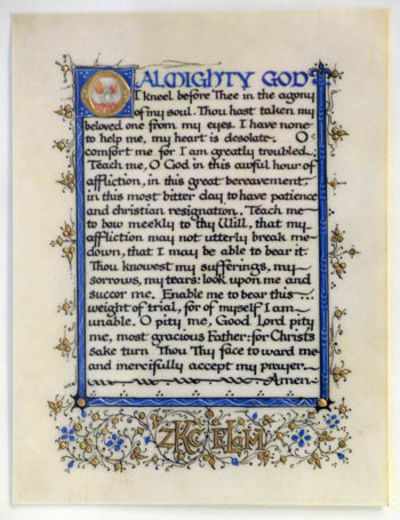 ALMIGHTY GOD
I kneel before Thee in the agony
of my soul. Thou hast taken my
beloved one from my eyes. I have none
to help me, my heart is desolate. O
comfort me for I am greatly troubled.
Teach me, O God in this awful hour of
affliction, in this great bereavement,
in this most bitter day to have patience
and christian resignation. Teach me
to bow meekly to thy Will, that my
affliction may not utterly break me
down, that I may be able to bear it.
Thou knowest my sufferings, my
sorrows, my tears: look upon me and
succor me. Enable me to bear this
weight of trial, for of myself I am
unable. O pity me, Good Lord pity
me, most gracious Father: for Christs
sake turn Thou Thy face toward me
and mercifully accept my prayer.
Amen